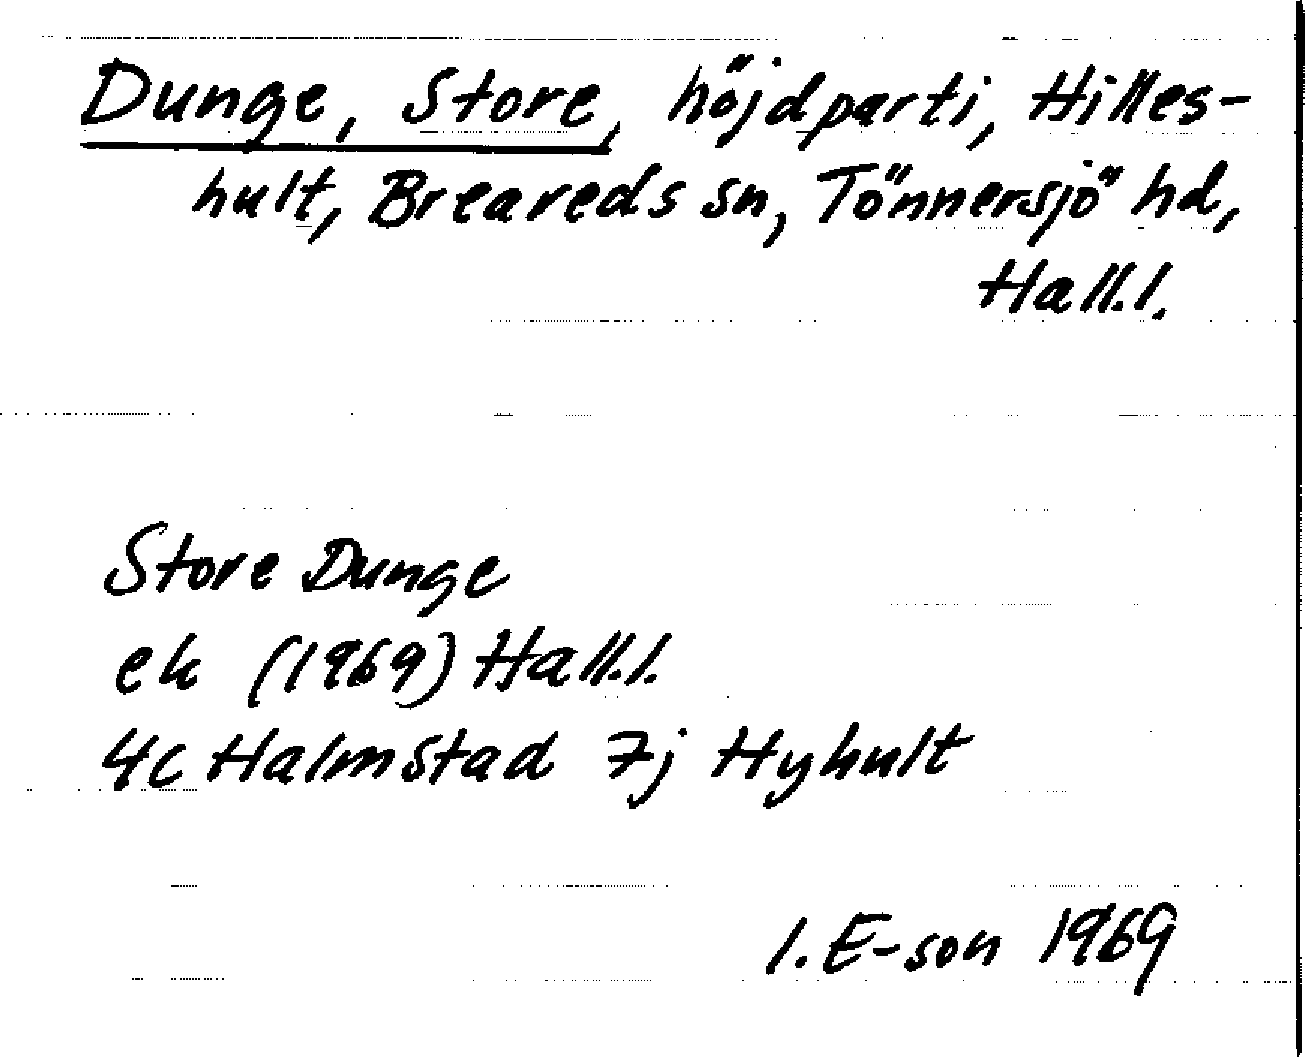 Dunge, Store, höjdparti, Hilles-
hult, Breareds sn, Tönnersjö hd,
Hall.l.
Store Dunge
ek (1969) Hall.l.
4c Halmstad 7j Hyhult
I. E-son 1969